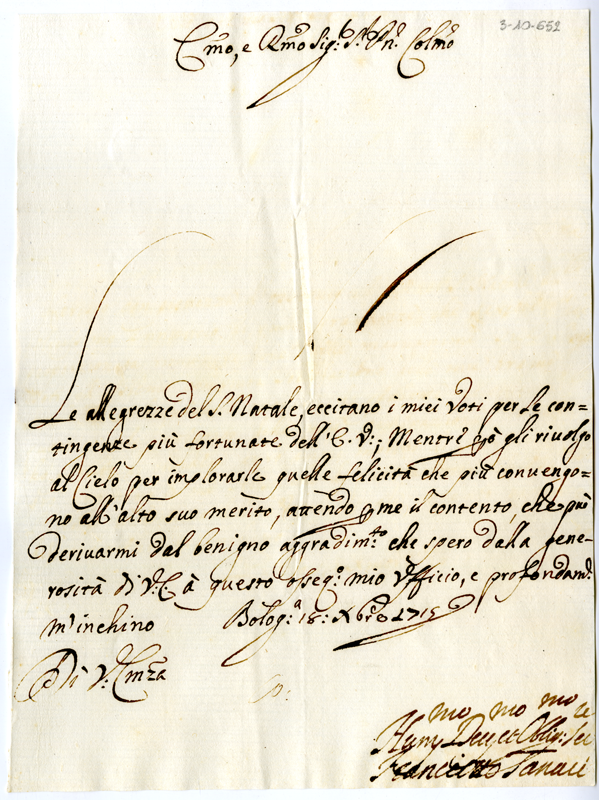 3-10-652
Emo, e Rmo Sig: Sr. Pn. Colmo
Le allegrezze del S. Natale, eccitano i miei Voti per le con=
tingenze più fortunate dell'E. V.; Mentre gli riuolgo
al Cielo per implorarle quelle felicità che più conuengo=
no all'alto suo merito, auendo p me il contento, che può
deriuarmi dal benigno aggradimto. che spero dalla gene=
rosità di V. E à questo osseqo. mio Vfficio, e profondamte.
m'inchino Bologa. 18: Xbre 1715
Di V. Emza
mo mo mo re
Hum Deu et Obligi: Ser
Francicus Tanari